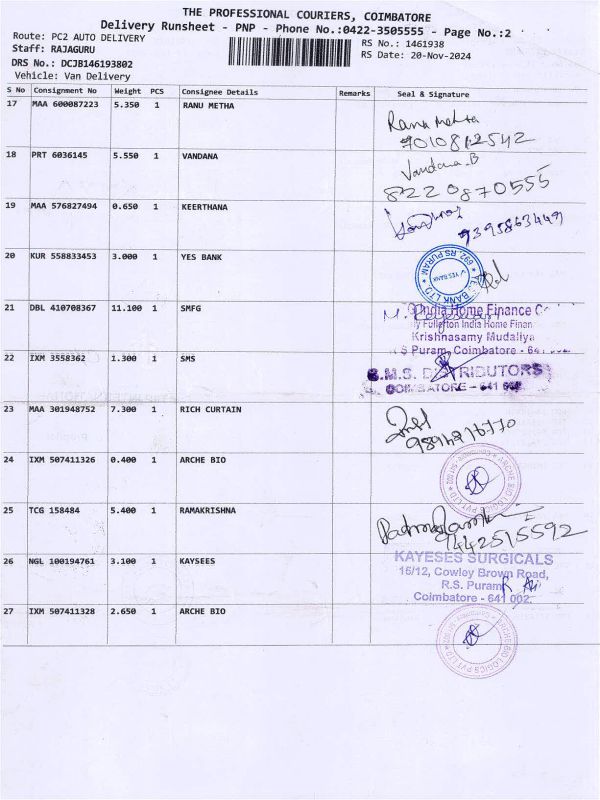 THE PROFESSIONAL COURIERS, COIMBATORE
Delivery Runsheet - PNP - Phone No.:0422-3505555 - Page No.:2
Route: PC2 AUTO DELIVERY
RS No.: 1461938
Staff: RAJAGURU
RS Date: 20-Nov-2024
DRS No.: DCJB146193802
Vehicle: Van Delivery
S No Consignment No Weight PCS Consignee Details Remarks Seal & Signature
17 MAA 600087223 5.350 1 RANU METHA
Ranu Mehta
7010812542
18 PRT 6036145 5.550 1 VANDANA
Vandana B
8220870555
19 MAA 576827494 0.650 1 KEERTHANA
9395863449
20 KUR 558833453 3.000 1 YES BANK
YES BANK LTD 692, RS PURAM
YES BANK
21 DBL 410708367 11.100 1 SMFG
India Home Finance Co
Fullerton India Home Finan
Krishnasamy Mudaliya
S Puram, Coimbatore - 641
22 IXM 3558362 1.300 1 SMS
S.M.S. DISTRIBUTORS
COIMBATORE - 641
23 MAA 301948752 7.300 1 RICH CURTAIN
24 IXM 507411326 0.400 1 ARCHE BIO
ARCHE BIO LOGICS PVT LTD
25 TCG 158484 5.400 1 RAMAKRISHNA
9442515592
26 NGL 100194761 3.100 1 KAYSEES
KAYESES SURGICALS
15/12, Cowley Brown Road,
R.S. Puram
Coimbatore - 641 002.
27 IXM 507411328 2.650 1 ARCHE BIO
ARCHE BIO LOGICS PVT LTD